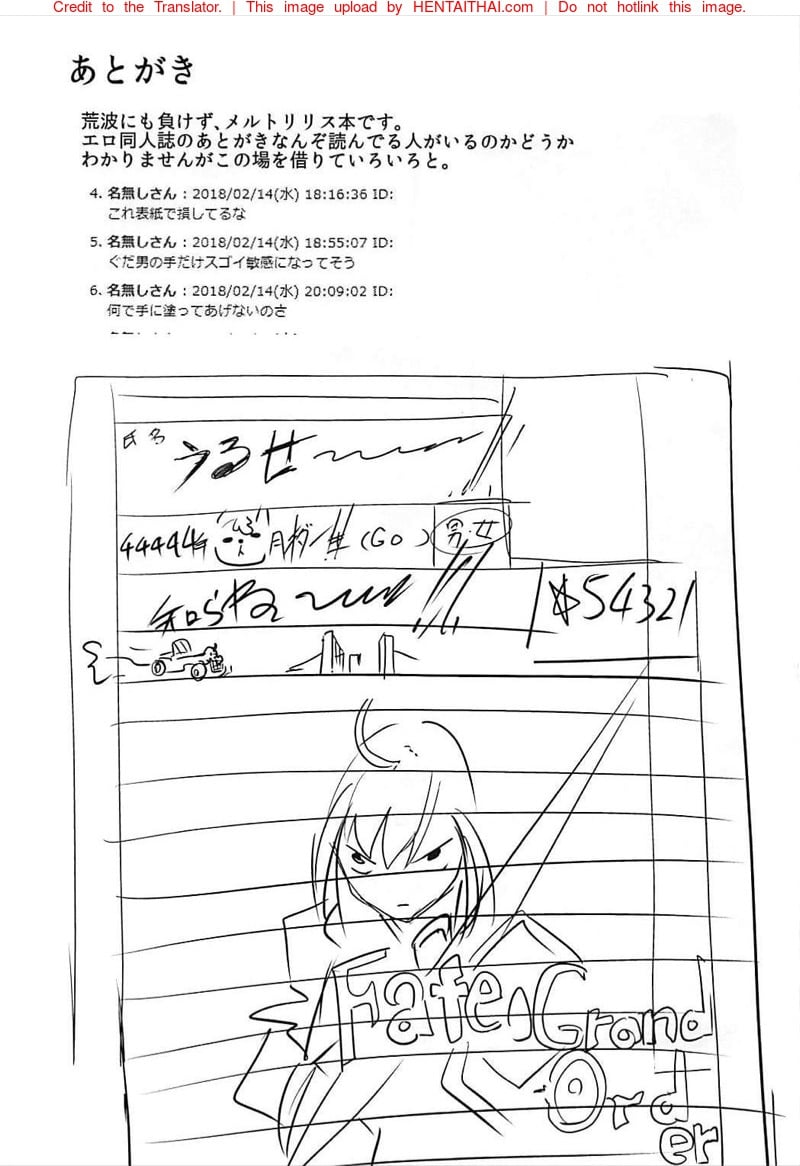 Credit to the Translator. | This image upload by HENTAITHAI.com | Do not hotlink this image.
あとがき
荒波にも負けず、メルトリリス本です。
エロ同人誌のあとがきなんぞ読んでる人がいるのかどうか
わかりませんがこの場を借りていろいろと。
4. 名無しさん : 2018/02/14(水) 18:16:36 ID:
これ表紙で損してるな
5. 名無しさん : 2018/02/14(水) 18:55:07 ID:
ぐだ男の手だけスゴイ敏感になってそう
6. 名無しさん : 2018/02/14(水) 20:09:02 ID:
何で手に塗ってあげないのさ
氏名
うるせ
44444年 月 (Go) 男・女
知らね
54321
Fate Grand
Order